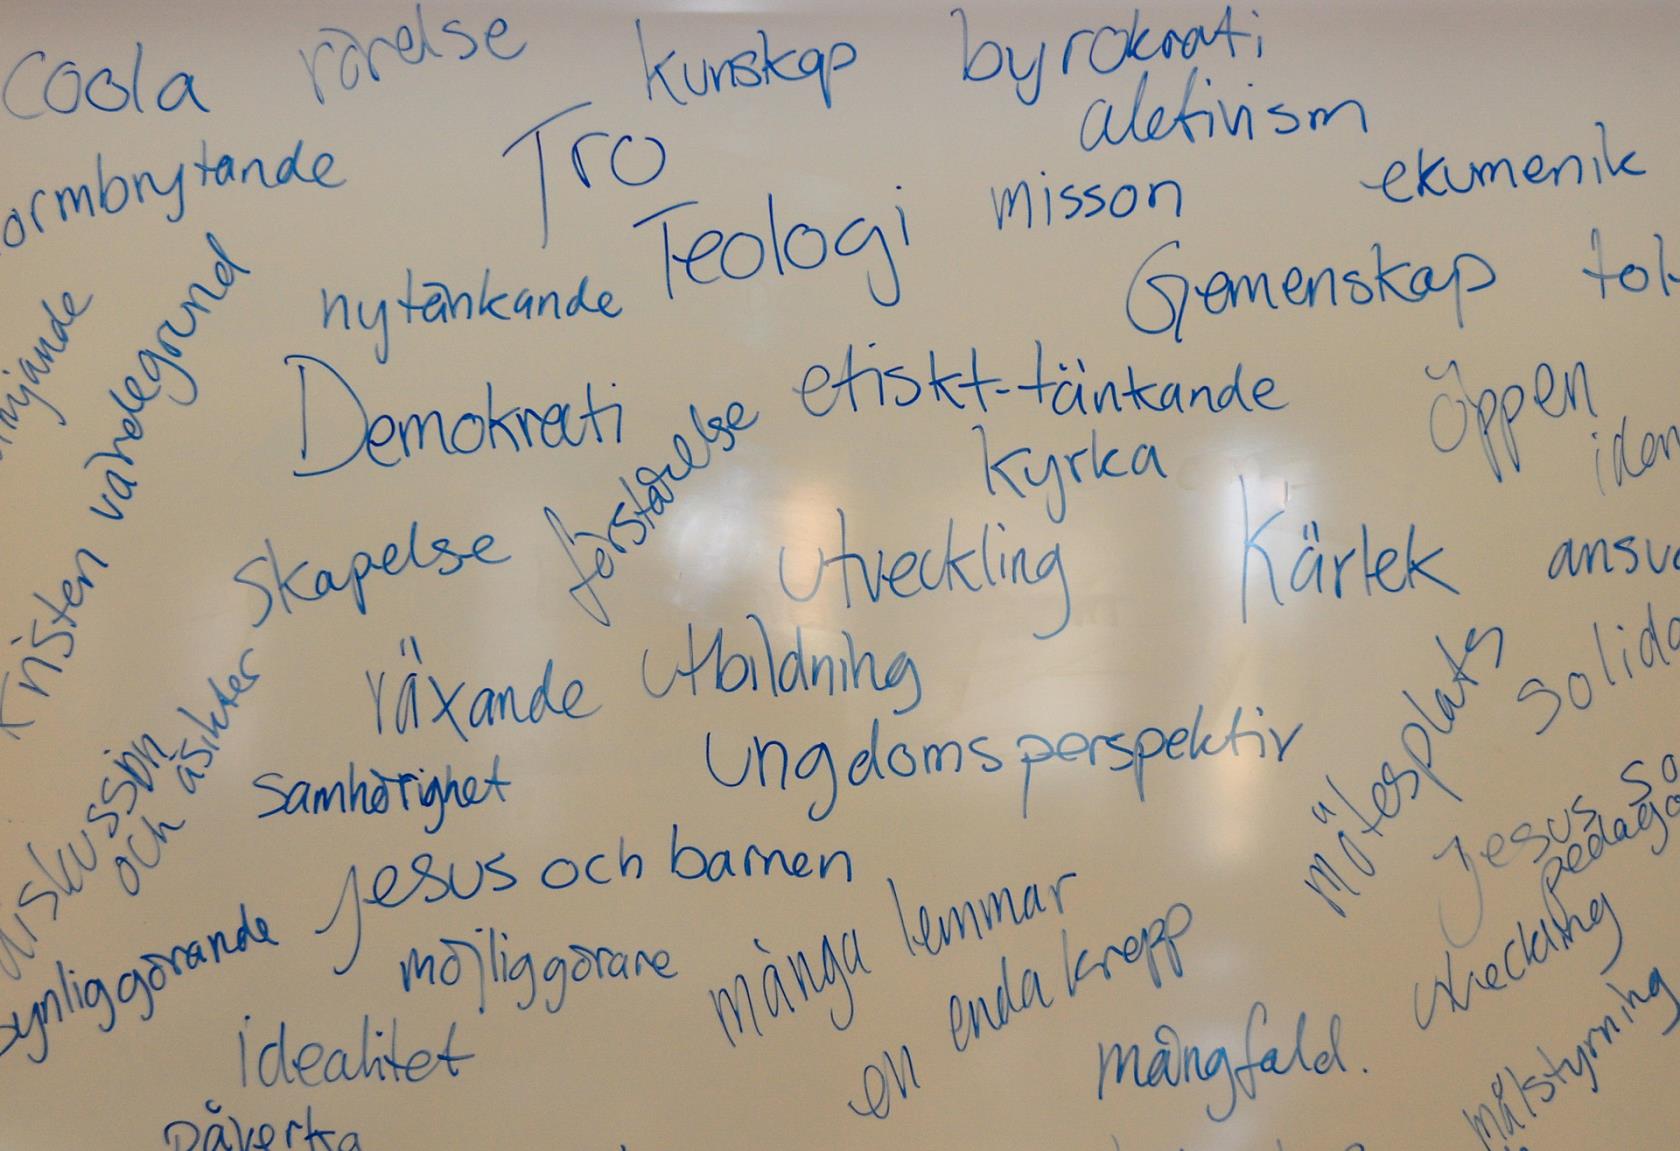 Coola rörelse kunskap byrokrati
aktivism
ormbrytande Tro misson ekumenik
Teologi
nytänkande Gemenskap tol
Kristen värdegrund
Demokrati etiskt-tänkande öppen
förståelse kyrka iden
Skapelse utveckling Kärlek ansva
växande utbildning solida
diskussion
och åsikter
Samhörighet ungdomsperspektiv mötesplats
Jesus so
pedago
Jesus och barnen
synliggörande möjliggörare många lemmar utveckling
en enda kropp
idealitet mångfald. målstyrning
påverka